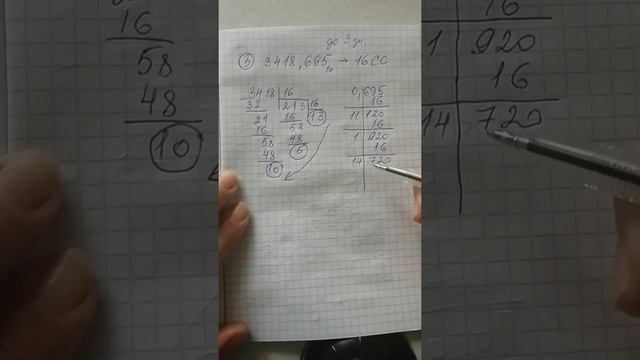 до 3 зн.
5) 3418,695₁₀ → 16СС
3418 | 16
32 | 213 | 16
21 16 13
16 53
58 48
48 5
10
0, | 695
16
11 | 120
16
1 | 920
16
14 | 720
16
58
48
10
16
1 | 920
16
14 | 720